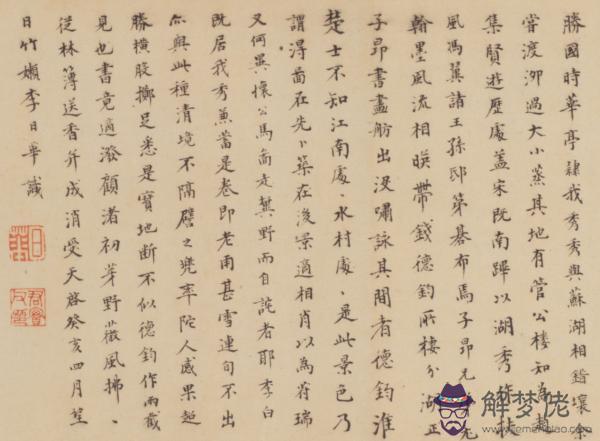 勝國時華亭隸我秀秀與蘇湖相錯壤余
嘗渡泖過大小蒸其地有管公樓知為
集賢遊歷處蓋宋既南蹕以湖秀作扶
風馮翼諸王孫邸第碁布焉子昂兄
翰墨風流相映帶錢德鈞所棲分湖正
子昂書畫舫出沒嘯詠其間者德鈞淮
楚士不知江南處處水村處處是此景色乃
謂得圖在先卜築在後景適相肖以為符瑞
又何異懷公馬圖走冀野而自詫者耶李白
既居我秀兼蓄是卷即老甫甚雪連旬不出
亦與此種清境不隔礕之兜率陀人感果超
勝橫股擲足悉是寶地斷不似德鈞作兩截
見也書竟適潑顧渚初芽野薇風拂拂
從林薄送香并成消受天啓癸亥四月望
日竹嬾李日華識
日華
君實父印
解梦佬
www.cememgliao.com